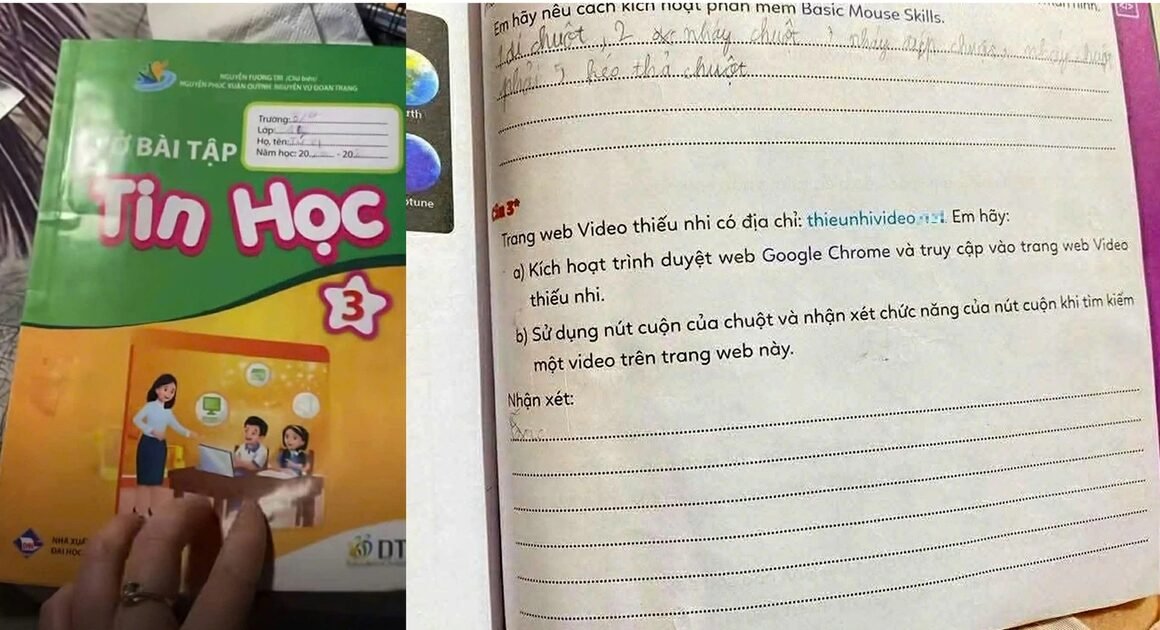 NGUYỄN TƯƠNG TRI (Chủ biên)
NGUYỄN PHÚC XUÂN QUỲNH NGUYỄN VŨ ĐOAN TRANG
Trường:
Lớp:
Họ, tên:
Năm học: 20 - 20
BÀI TẬP
Tin Học
3
NHÀ XUẤ
ĐẠI HỌC
DT
rth
ptune
Em hãy nêu cách kích hoạt phần mềm Basic Mouse Skills.
chuột, 2 nháy chuột
phải 5 kéo thả chuột
Câu 3*
Trang web Video thiếu nhi có địa chỉ: thieunhivideo. Em hãy:
a) Kích hoạt trình duyệt web Google Chrome và truy cập vào trang web Video
thiếu nhi.
b) Sử dụng nút cuộn của chuột và nhận xét chức năng của nút cuộn khi tìm kiếm
một video trên trang web này.
Nhận xét: